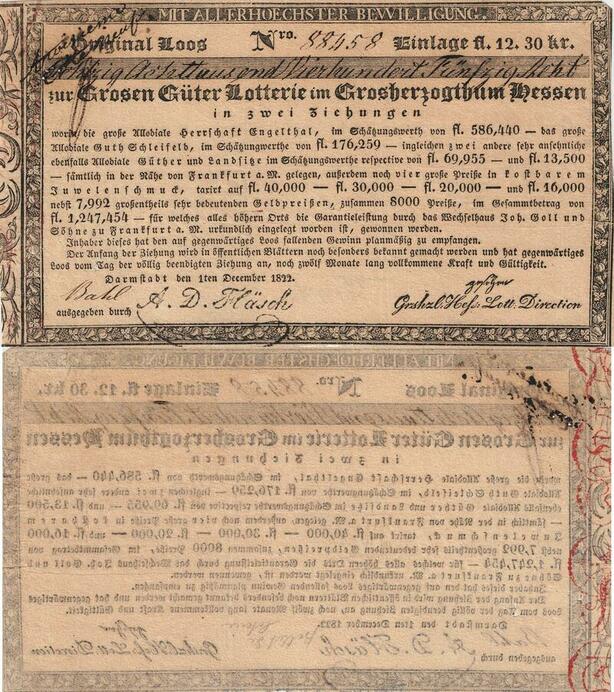 MIT ALLERHOECHSTER BEWILLIGUNG.
Original Loos Nro. 88458 Einlage fl. 12. 30 kr.
Achttausend Vierhundert Fünfzig Acht
zur Grosen Güter Lotterie im Grosherzogthum Hessen
in zwei Ziehungen
worin die große Allodiale Herrschaft Engelthal, im Schätzungswerth von fl. 586,440 — das große
Allodiale Guth Schleifeld, im Schätzungwerthe von fl. 176,259 — ingleichen zwei andere sehr ansehnliche
ebenfalls Allodiale Güther und Landsitze im Schätzungswerthe respective von fl. 69,955 — und fl. 13,500
— sämtlich in der Nähe von Frankfurt a. M. gelegen, außerdem noch vier große Preise in kostbarem
Juwelenschmuck, taxirt auf fl. 40,000 — fl. 30,000 — fl. 20,000 — und fl. 16,000
nebst 7,992 großentheils sehr bedeutenden Geldpreißen, zusammen 8000 Preiße, im Gesammtbetrag von
fl. 1,247,454 — für welches alles höhern Orts die Garantieleistung durch das Wechselhaus Joh. Goll und
Söhne zu Frankfurt a. M. urkundlich eingelegt worden ist, gewonnen werden.
Inhaber dieses hat den auf gegenwärtiges Loos fallenden Gewinn planmäßig zu empfangen.
Der Anfang der Ziehung wird in öffentlichen Blättern noch besonders bekannt gemacht werden und hat gegenwärtiges
Loos vom Tag der völlig beendigten Ziehung an, noch zwölf Monate lang vollkommene Kraft und Gültigkeit.
Darmstadt den 1ten December 1822.
ausgegeben durch A. D. Fläsch Grshzl. Hess. Lott. Direction